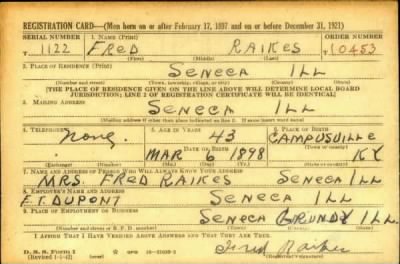 REGISTRATION CARD—(Men born on or after February 17, 1897 and on or before December 31, 1921)
SERIAL NUMBER 1. NAME (Print) ORDER NUMBER
T 1122 FRED RAIKES 10453
(First) (Middle) (Last)
2. PLACE OF RESIDENCE (Print)
SENECA ILL
(Number and street) (Town, township, village, or city) (County) (State)
[THE PLACE OF RESIDENCE GIVEN ON THE LINE ABOVE WILL DETERMINE LOCAL BOARD
JURISDICTION; LINE 2 OF REGISTRATION CERTIFICATE WILL BE IDENTICAL]
3. MAILING ADDRESS
SENECA ILL
[Mailing address if other than place indicated on line 2. If same insert word same]
4. TELEPHONE 5. AGE IN YEARS 6. PLACE OF BIRTH
None 43 CAMPUSVILLE
DATE OF BIRTH (Town or county)
MAR 6 1898 KY
(Exchange) (Number) (Mo.) (Day) (Yr.) (State or country)
7. NAME AND ADDRESS OF PERSON WHO WILL ALWAYS KNOW YOUR ADDRESS
MRS. FRED RAIKES SENECA ILL
8. EMPLOYER'S NAME AND ADDRESS
E.T. DUPONT SENECA ILL
9. PLACE OF EMPLOYMENT OR BUSINESS
SENECA GRUNDY ILL.
(Number and street or R. F. D. number) (Town) (County) (State)
I AFFIRM THAT I HAVE VERIFIED ABOVE ANSWERS AND THAT THEY ARE TRUE.
D. S. S. Form 1
(Revised 1-1-42) GPO Fred Raikes